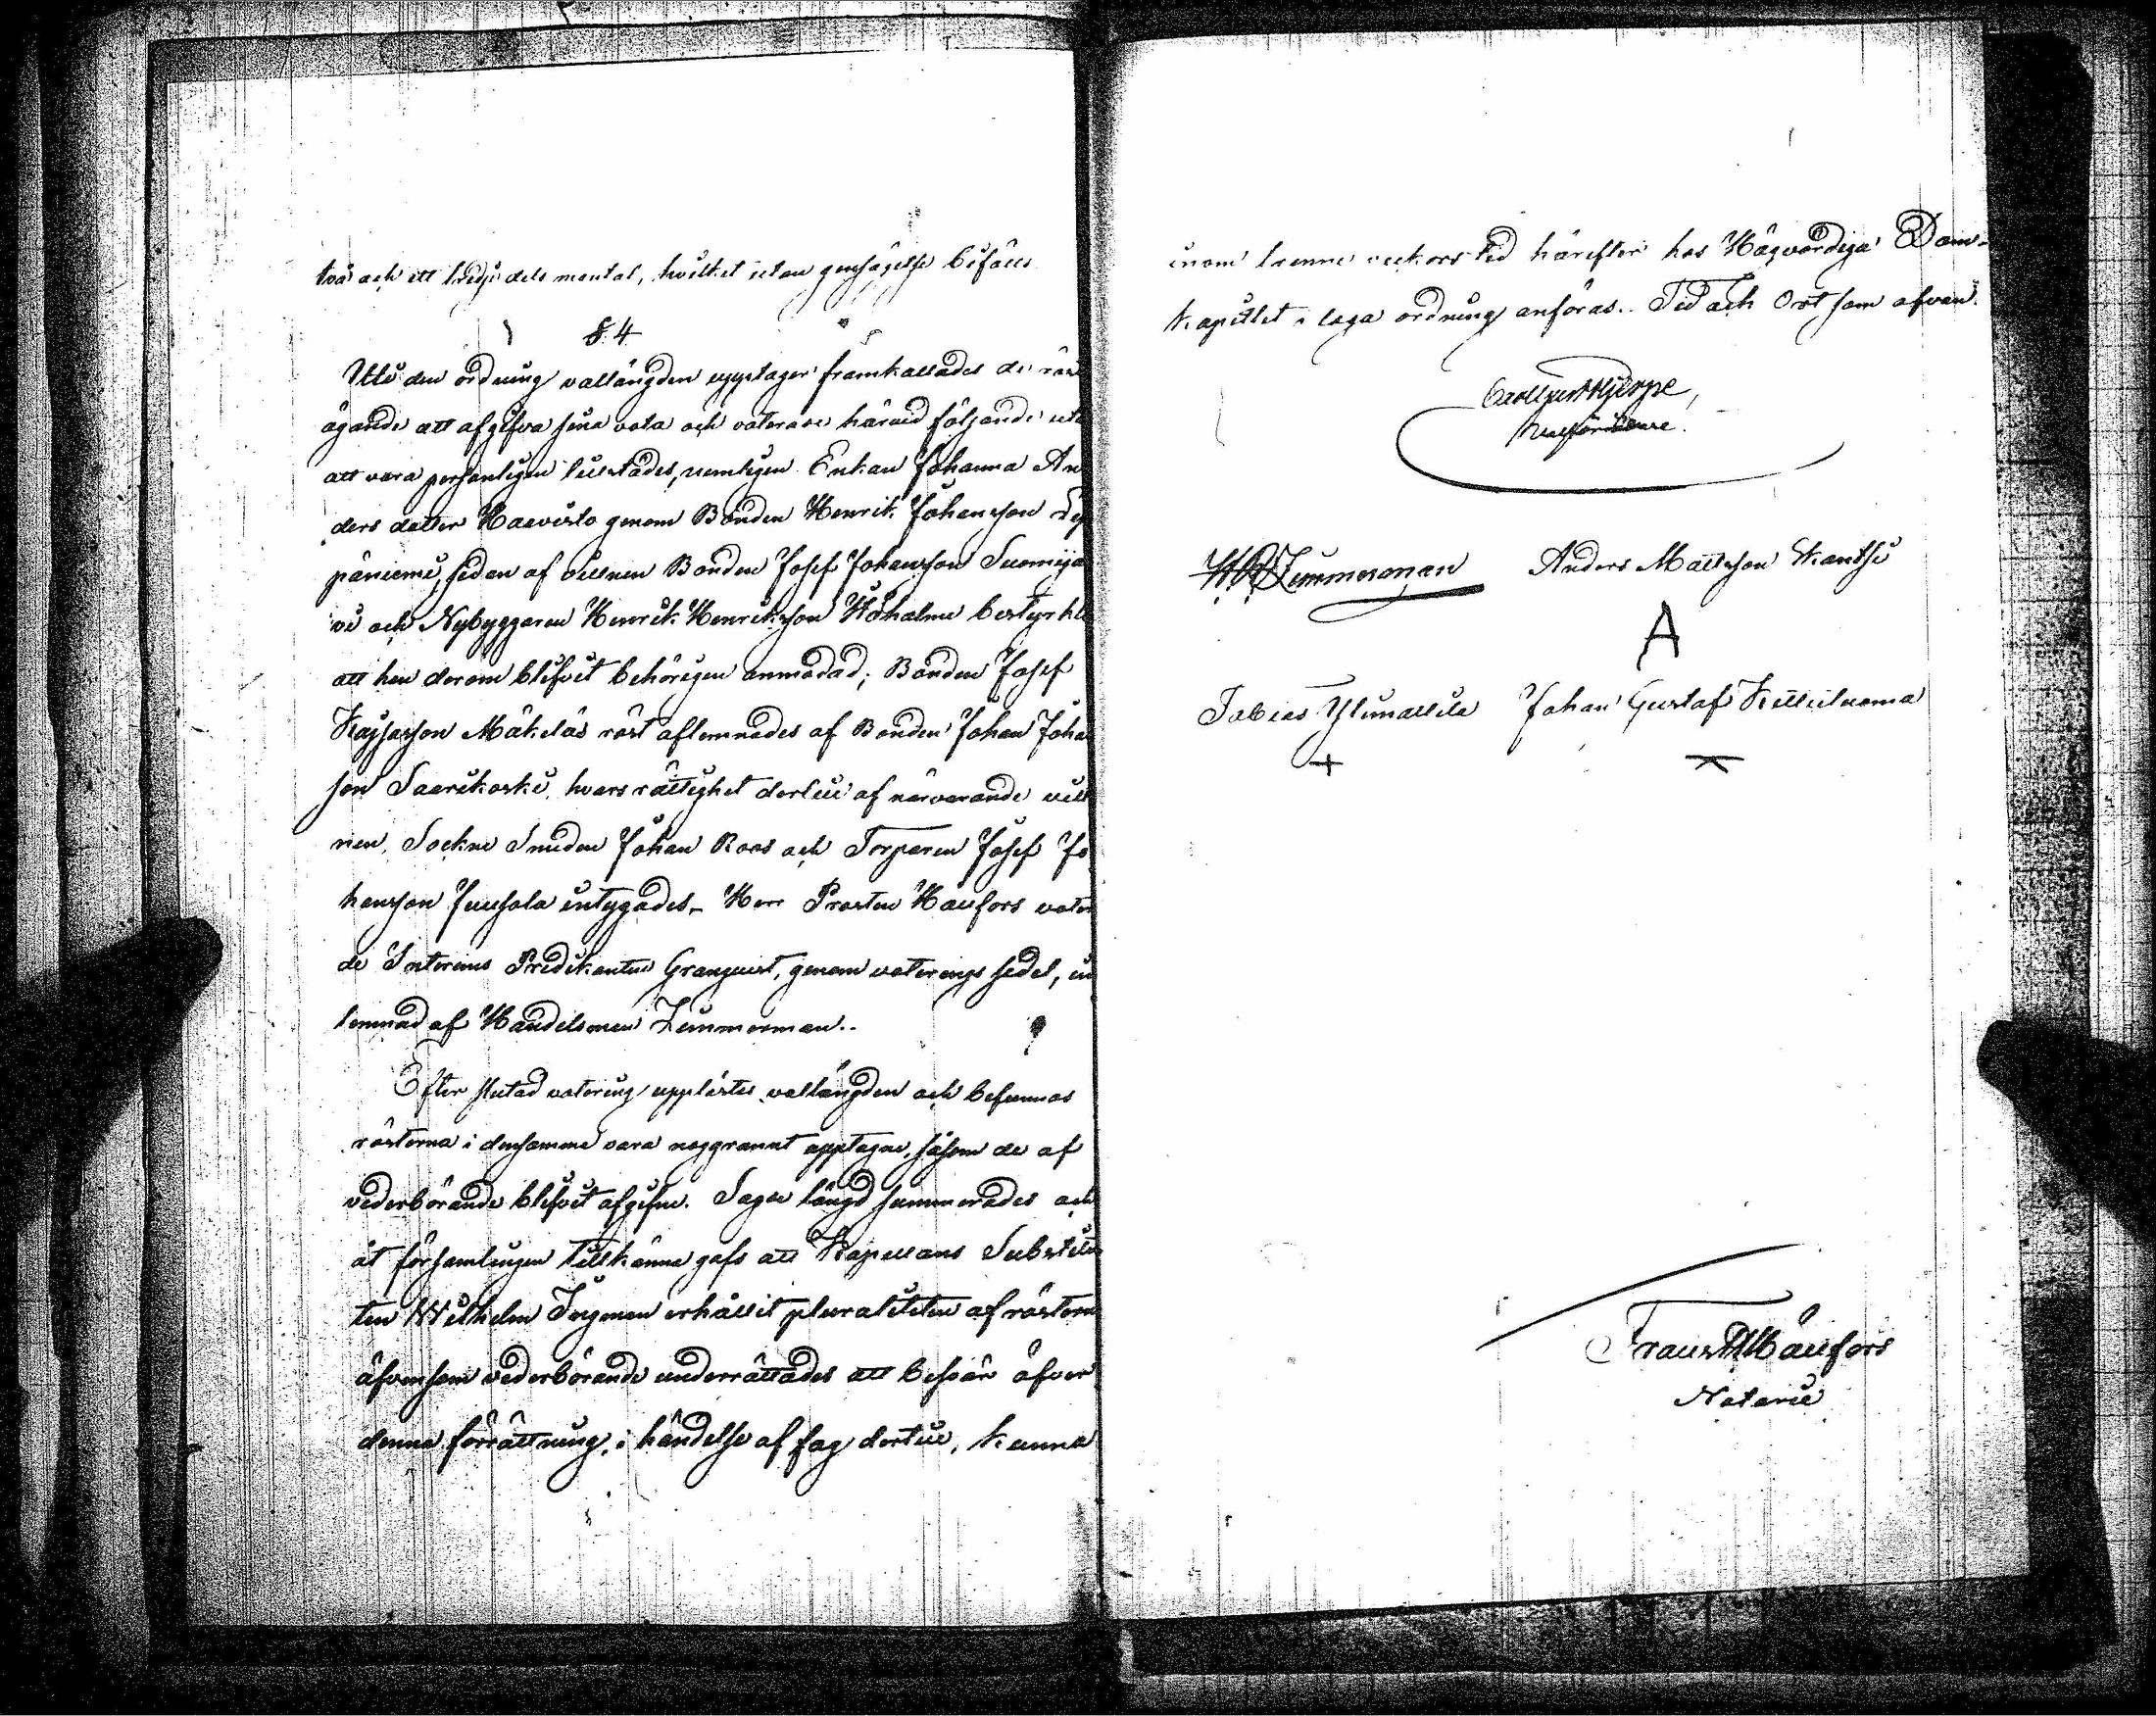 två och ett tredje dels mantal, hvilket utan gensägelse bifölls
§ 4
Uti den ordning vallängden upptager framkallades de röst
ägande att afgifva sina vota och voterade härvid följande utan
att vara personligen tillstädes, nemligen Enkan Johanna An
ders dotter Haavisto genom Bonden Henrik Johansson
päniemi, sedan af vittnen Bonden Josef Johansson Suomija
vi och Nybyggaren Henrik Henriksson bestyrkts
att han derom blifvit behörigen anmodad; Bonden Josef
Kajsasson Mäkeläs röst aflemnades af Bonden Johan Johans
son Saarikoski, hvars rättighet dertill af närvarande vitt
nen, Sockne Smeden Johan Roos och Torparen Josef Jo
hansson Juusola intygades. Herr Prosten Hällfors votera
de Interims Predikanten Granquist, genom voterings sedel, in
lemnad af Handelsman Zimmerman.
Efter slutad votering upplästes vallängden och befunnos
rösterna i densamma vara noggrannt upptagne, såsom de af
vederbörande blifvit afgifne. Sagde längd summerades och
åt församlingen tillkänna gafs att Kapellans Substitu
ten Wilhelm Ingman erhållit pluraliteten af rösterna
äfvensom vederbörande underrättades att besvär öfver
denna förrättning, i händelse af fog dertill, kunna
inom trenne veckors tid härefter hos Högvördiga Dom-
kapitlet i laga ordning anföras. Tid och Ort som ofvan.
Ordförande.
Zimmerman Anders Mattsson Kantti
A
Tobias Ylimattila Johan Gustaf
Frans Hällfors
Notarie